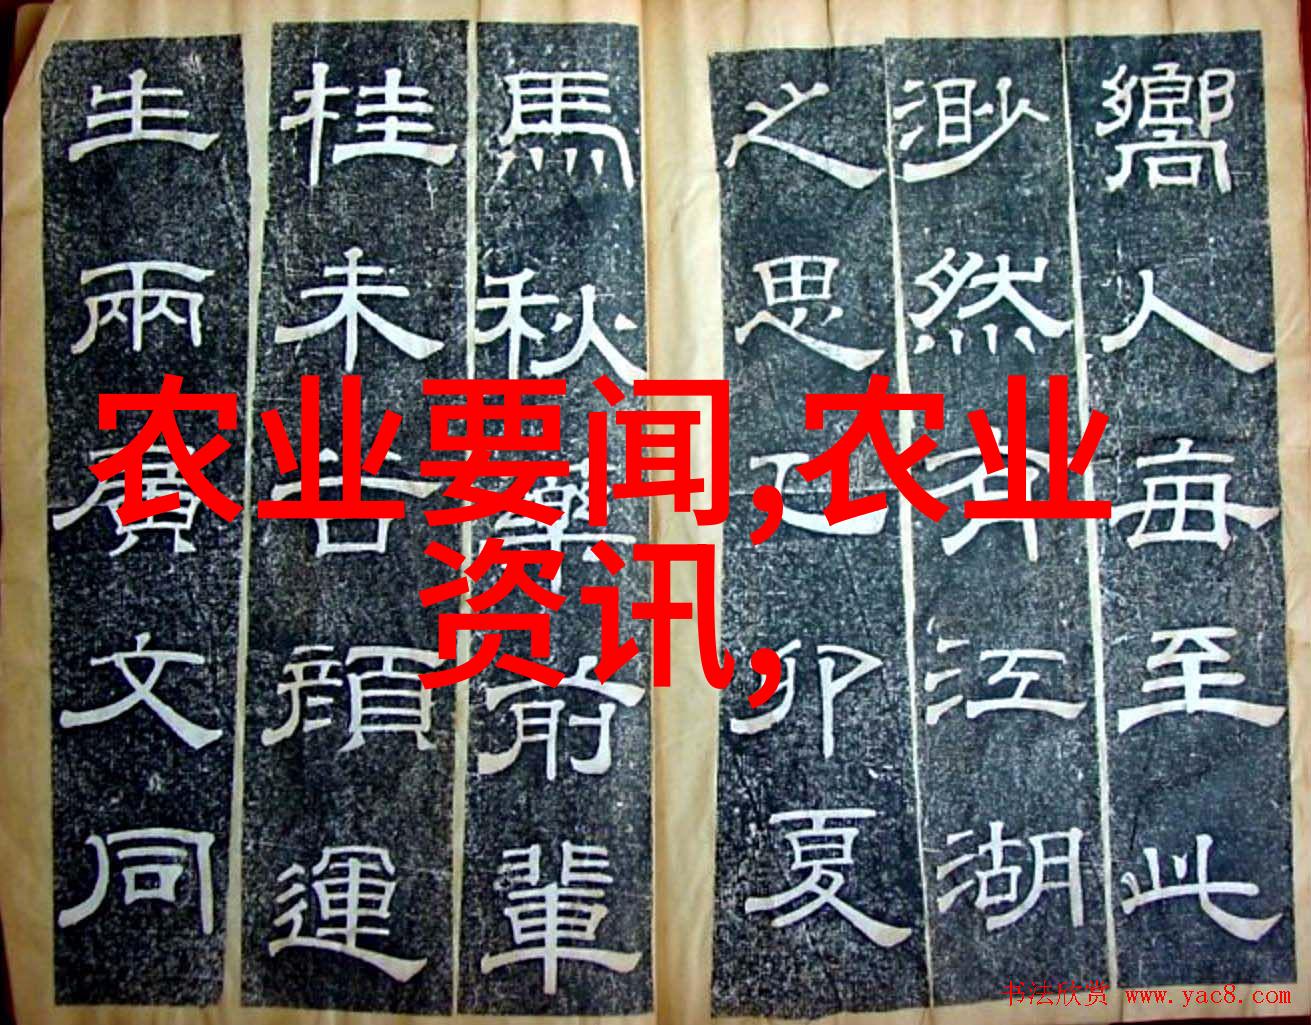 嚮人每至此
渺然有江湖
之思乙卯夏
馬秋藥前輩
桂未谷顏運
生兩廣文同
农业要闻,农业
资讯,
书法欣赏 www.yac8.com